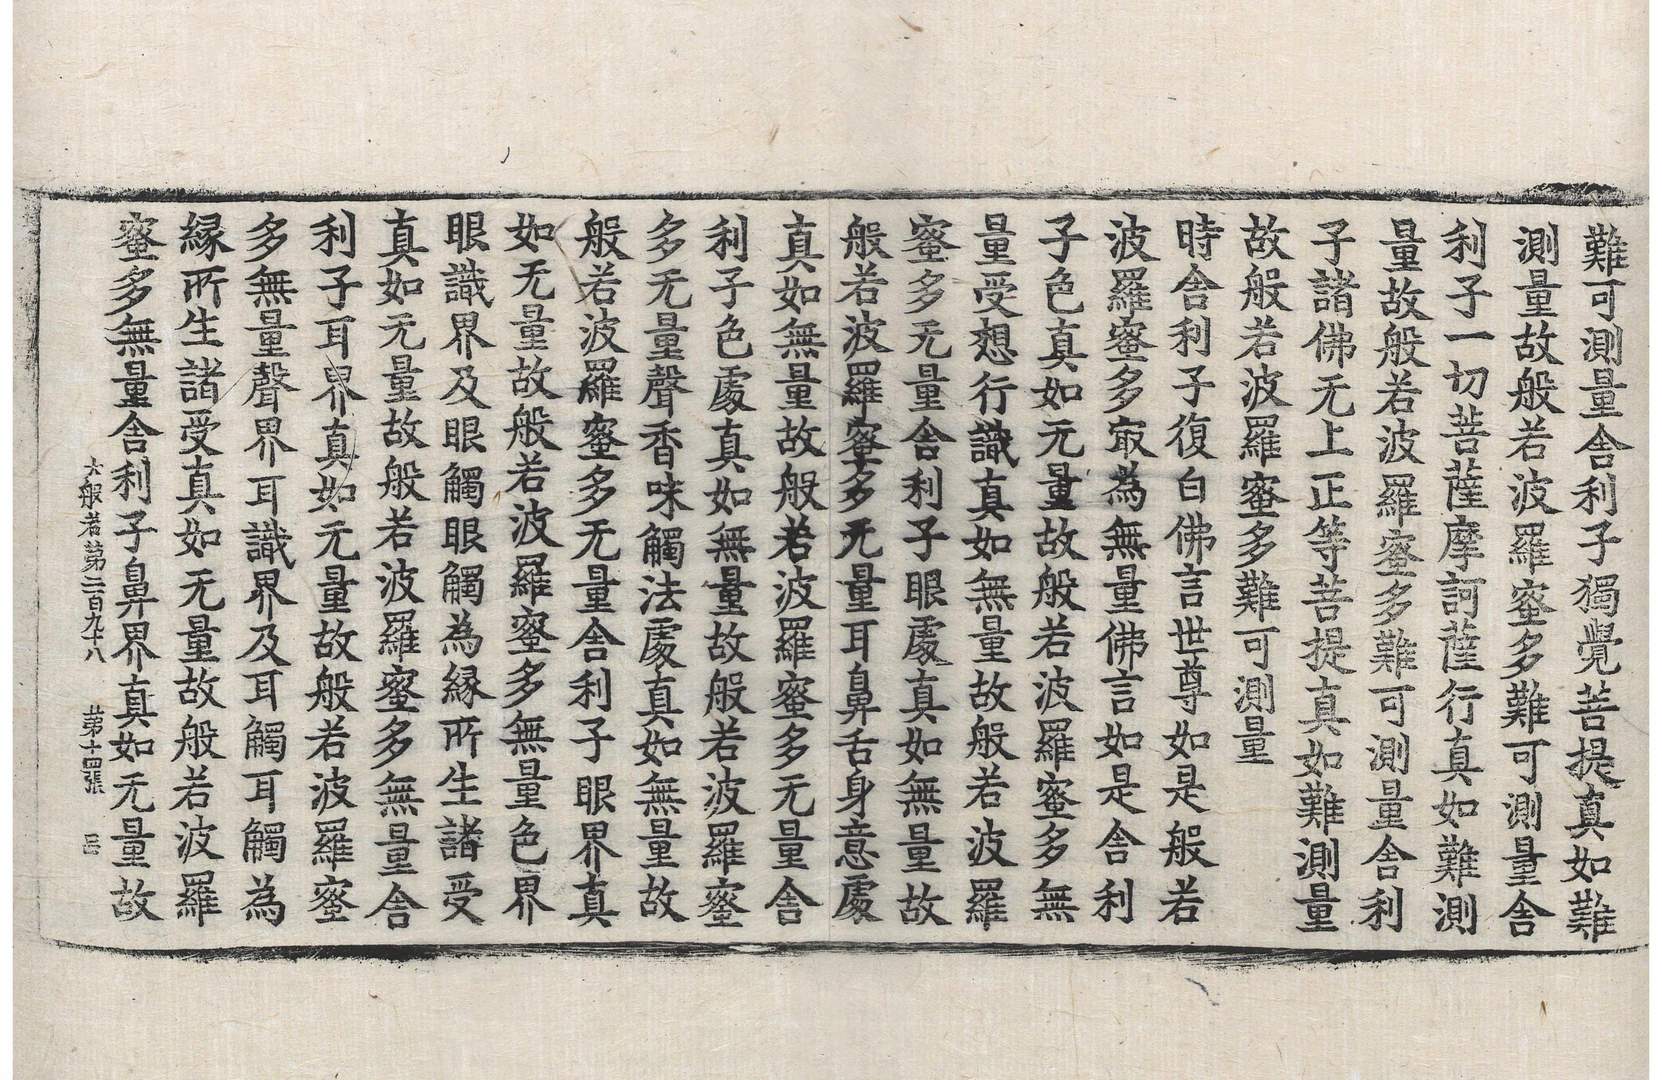 難可測量舍利子獨覺菩提真如難
測量故般若波羅蜜多難可測量舍
利子一切菩薩摩訶薩行真如難測
量故般若波羅蜜多難可測量舍利
子諸佛无上正等菩提真如難測量
故般若波羅蜜多難可測量
時舍利子復白佛言世尊如是般若
波羅蜜多㝡為無量佛言如是舍利
子色真如无量故般若波羅蜜多無
量受想行識真如無量故般若波羅
蜜多无量舍利子眼處真如無量故
般若波羅蜜多无量耳鼻舌身意處
真如無量故般若波羅蜜多无量舍
利子色處真如無量故般若波羅蜜
多无量聲香味觸法處真如無量故
般若波羅蜜多无量舍利子眼界真
如无量故般若波羅蜜多無量色界
眼識界及眼觸眼觸為緣所生諸受
真如无量故般若波羅蜜多無量舍
利子耳界真如无量故般若波羅蜜
多無量聲界耳識界及耳觸耳觸為
緣所生諸受真如无量故般若波羅
蜜多無量舍利子鼻界真如无量故
大般若第二百九十八 第十四張